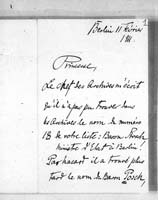 Berlin 11 Février
Princesse,
Le chef des Archives m'écrit
qu'il n'a pas pu trouver dans
les Archives le nom du numéro
18 de votre liste: Baron
ministre d'Etat à Berlin!
Par hasard il a trouvé plus
tard le nom du Baron Posch,